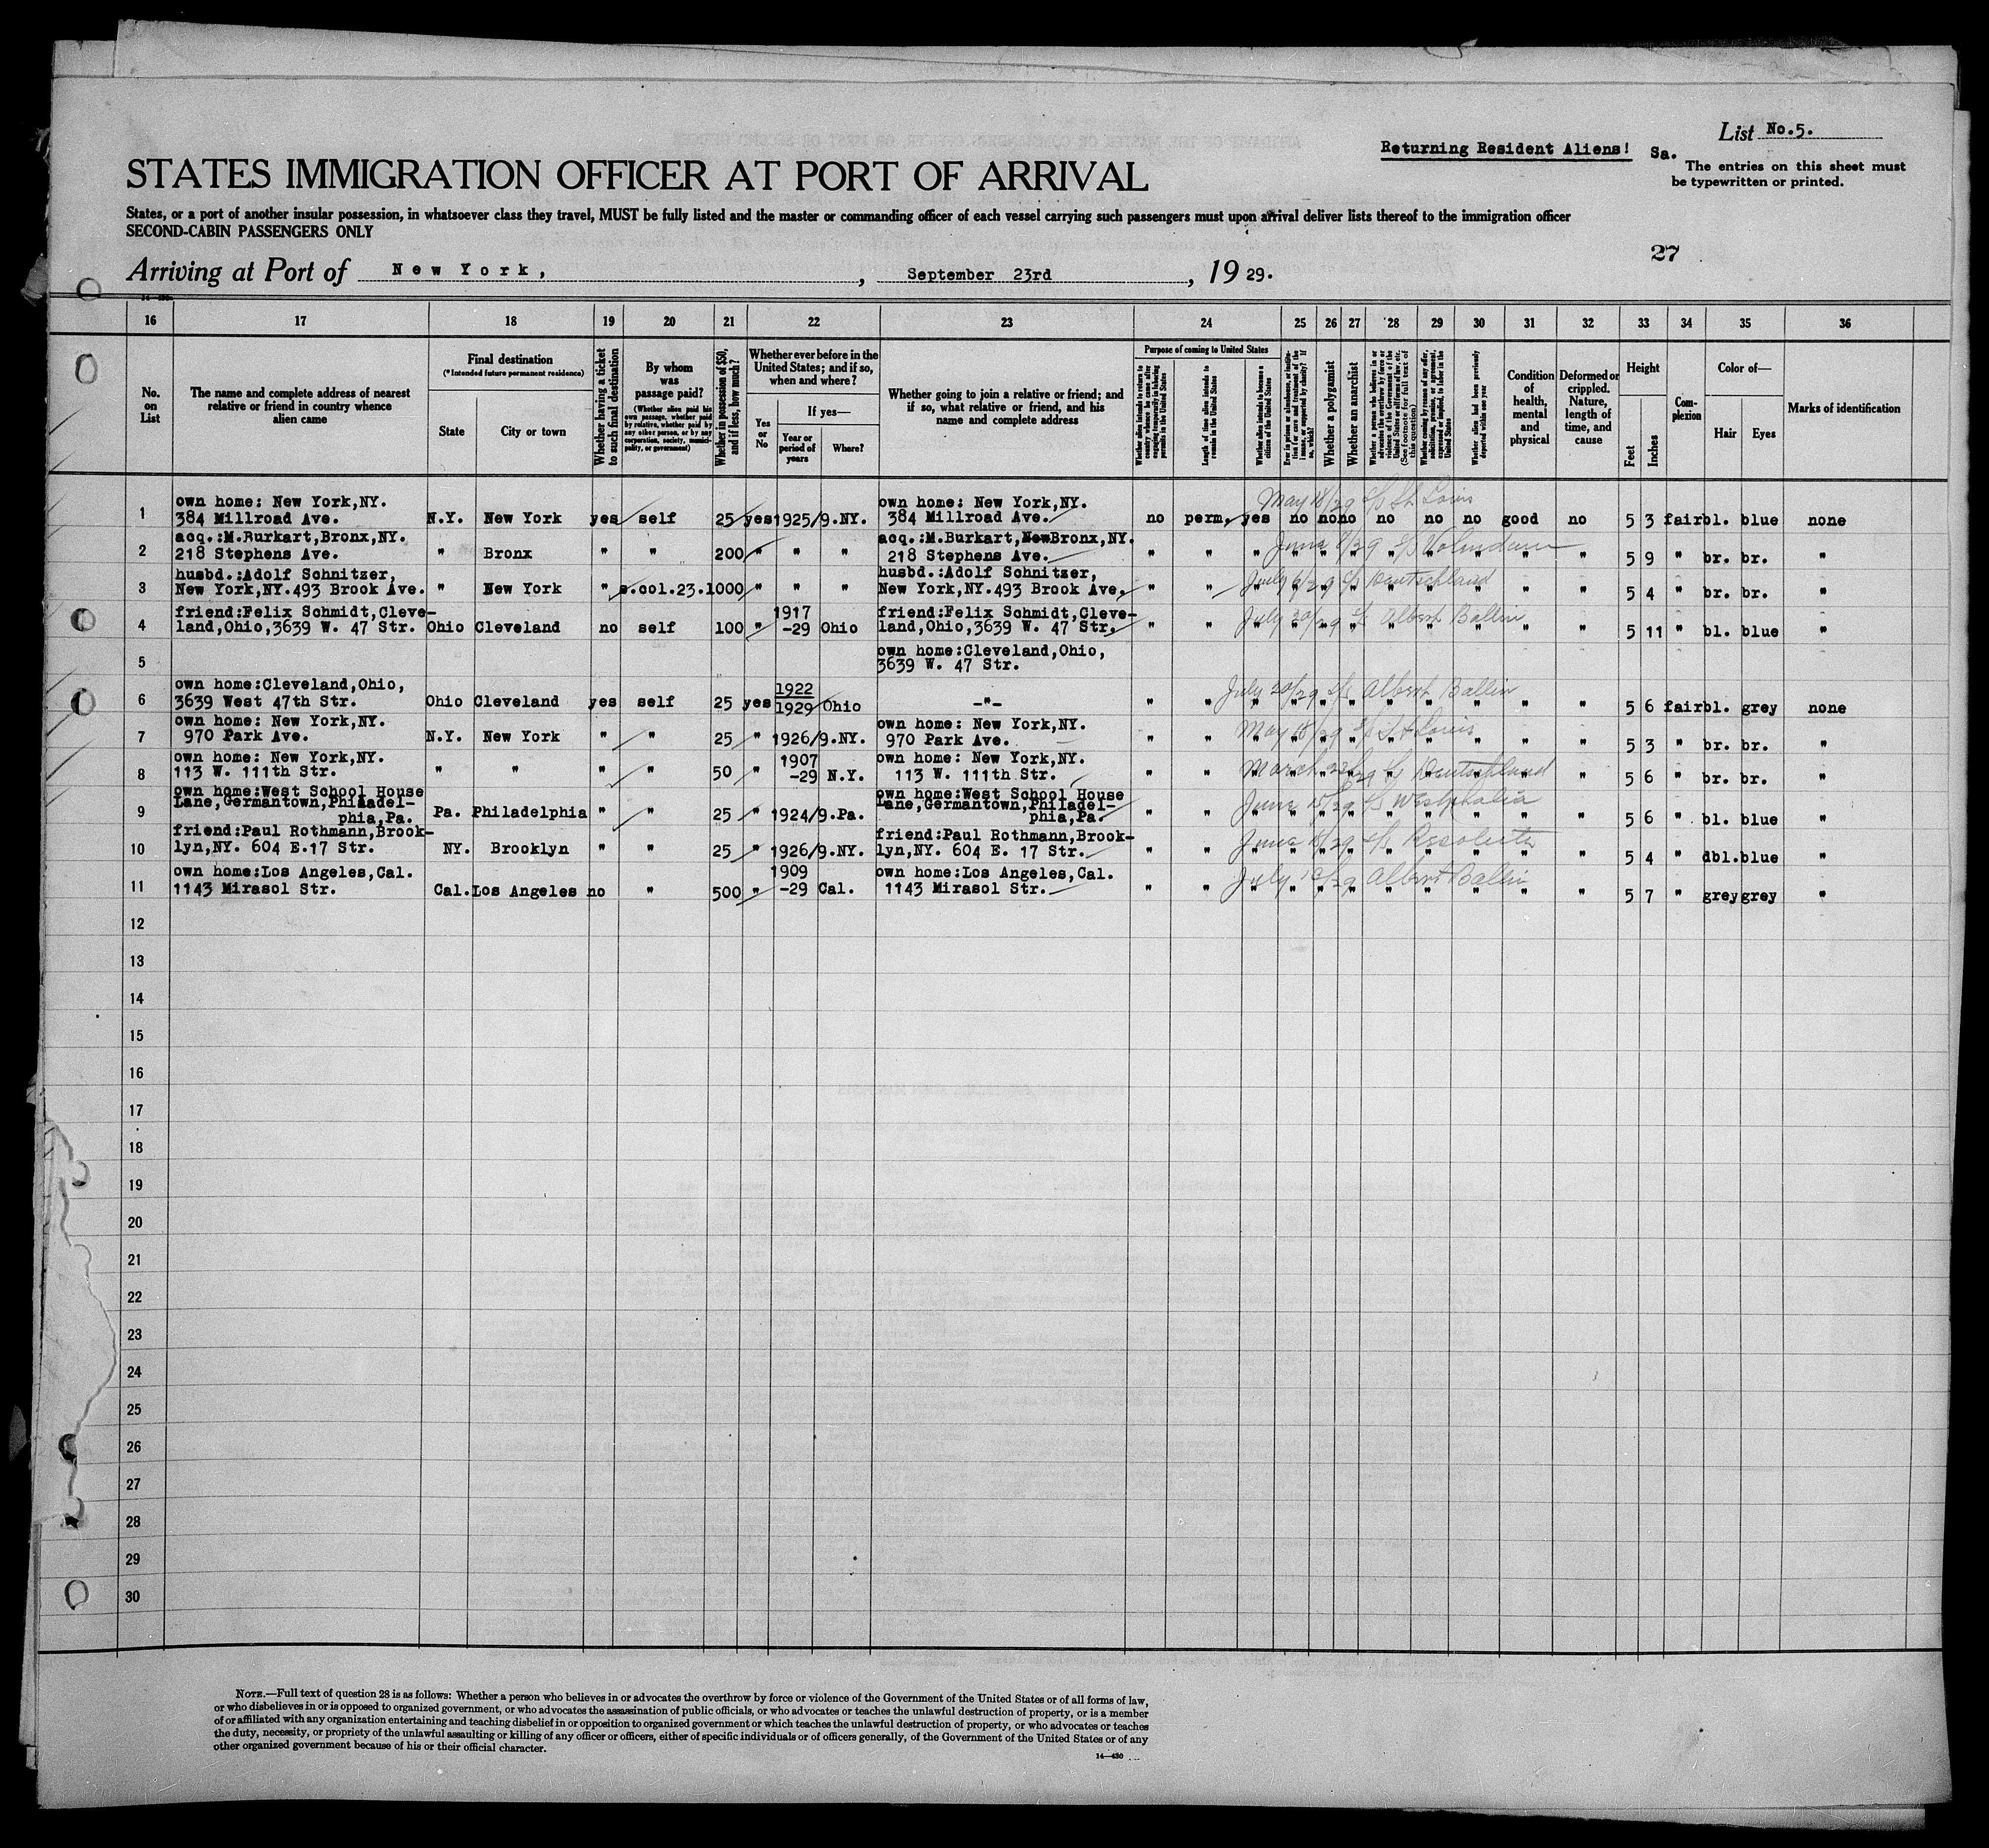 List No.5.
Returning Resident Aliens!
Sa.
The entries on this sheet must
be typewritten or printed.
STATES IMMIGRATION OFFICER AT PORT OF ARRIVAL
States, or a port of another insular possession, in whatsoever class they travel, MUST be fully listed and the master or commanding officer of each vessel carrying such passengers must upon arrival deliver lists thereof to the immigration officer
SECOND-CABIN PASSENGERS ONLY
27
Arriving at Port of New York, , September 23rd , 19 29.
16 17 18 19 20 21 22 23 24 25 26 27 28 29 30 31 32 33 34 35 36
No. on List
The name and complete address of nearest relative or friend in country whence alien came
Final destination
(*Intended future permanent residence)
State
City or town
Whether having a ticket to such final destination
By whom was passage paid?
(Whether alien paid his own passage, whether paid by relative, whether paid by any other person, or by any corporation, society, municipality, or government)
Whether in possession of $50, and if less, how much?
Whether ever before in the United States; and if so, when and where?
Yes or No
If yes—
Year or period of years
Where?
Whether going to join a relative or friend; and if so, what relative or friend, and his name and complete address
Purpose of coming to United States
Length of time alien intends to remain in the United States
Whether alien intends to become a citizen of the United States
Whether a polygamist
Whether an anarchist
Whether alien had been previously deported within one year
Condition of health, mental and physical
Deformed or crippled. Nature, length of time, and cause
Height
Feet
Inches
Complexion
Color of—
Hair
Eyes
Marks of identification
May 18/29 s/s St. Louis
1 own home: New York,NY. 384 Millroad Ave. N.Y. New York yes self 25 yes 1925/9. NY. own home: New York,NY. 384 Millroad Ave. no perm. yes no no no no no no good no 5 3 fair bl. blue none
June 8/29 s/s Volendam
2 acq.:M.Burkart,Bronx,NY. 218 Stephens Ave. " Bronx " " 200 " " " acq.:M.Burkart,New Bronx,NY. 218 Stephens Ave. " " " " " " " " " " " 5 9 " br. br. "
July 6/29 s/s Deutschland
3 husbd.:Adolf Schnitzer, New York,NY.493 Brook Ave. " New York " s.col.23. 1000 " " " husbd.:Adolf Schnitzer, New York,NY.493 Brook Ave. " " " " " " " " " " " 5 4 " br. br. "
July 20/29 s/s Albert Ballin
4 friend:Felix Schmidt,Cleve- land,Ohio,3639 W. 47 Str. Ohio Cleveland no self 100 " 1917 -29 Ohio friend:Felix Schmidt,Cleve- land,Ohio,3639 W. 47 Str. " " " " " " " " " " " 5 11 " bl. blue "
5 own home:Cleveland,Ohio, 3639 W. 47 Str.
July 20/29 s/s Albert Ballin
6 own home:Cleveland,Ohio, 3639 West 47th Str. Ohio Cleveland yes self 25 yes 1922 1929 Ohio -"- " " " " " " " " " " " 5 6 fair bl. grey none
May 18/29 s/s St Louis
7 own home: New York,NY. 970 Park Ave. N.Y. New York " " 25 " 1926/9. NY. own home: New York,NY. 970 Park Ave. " " " " " " " " " " " 5 3 " br. br. "
March 28/29 s/s Deutschland
8 own home: New York,NY. 113 W. 111th Str. " " " " 50 " 1907 -29 N.Y. own home: New York,NY. 113 W. 111th Str. " " " " " " " " " " " 5 6 " br. br. "
June 15/29 s/s Westphalia
9 own home:West School House Lane,Germantown,Philadel- phia,Pa. Pa. Philadelphia " " 25 " 1924/9. Pa. own home:West School House Lane,Germantown,Philadel- phia,Pa. " " " " " " " " " " " 5 6 " bl. blue "
June 18/29 s/s Resolute
10 friend:Paul Rothmann,Brook- lyn,NY. 604 E.17 Str. NY. Brooklyn " " 25 " 1926/9. NY. friend:Paul Rothmann,Brook- lyn,NY. 604 E. 17 Str. " " " " " " " " " " " 5 4 " dbl. blue "
July /29 Albert Ballin
11 own home:Los Angeles,Cal. 1143 Mirasol Str. Cal. Los Angeles no " 500 " 1909 -29 Cal. own home:Los Angeles,Cal. 1143 Mirasol Str. " " " " " " " " " " " 5 7 " grey grey "
12
13
14
15
16
17
18
19
20
21
22
23
24
25
26
27
28
29
30
NOTE.—Full text of question 28 is as follows: Whether a person who believes in or advocates the overthrow by force or violence of the Government of the United States or of all forms of law,
or who disbelieves in or is opposed to organized government, or who advocates the assassination of public officials, or who advocates or teaches the unlawful destruction of property, or is a member
of or affiliated with any organization entertaining and teaching disbelief in or opposition to organized government or which teaches the unlawful destruction of property, or who advocates or teaches
the duty, necessity, or propriety of the unlawful assaulting or killing of any officer or officers, either of specific individuals or of officers generally, of the Government of the United States or of any
other organized government because of his or their official character.
14—430